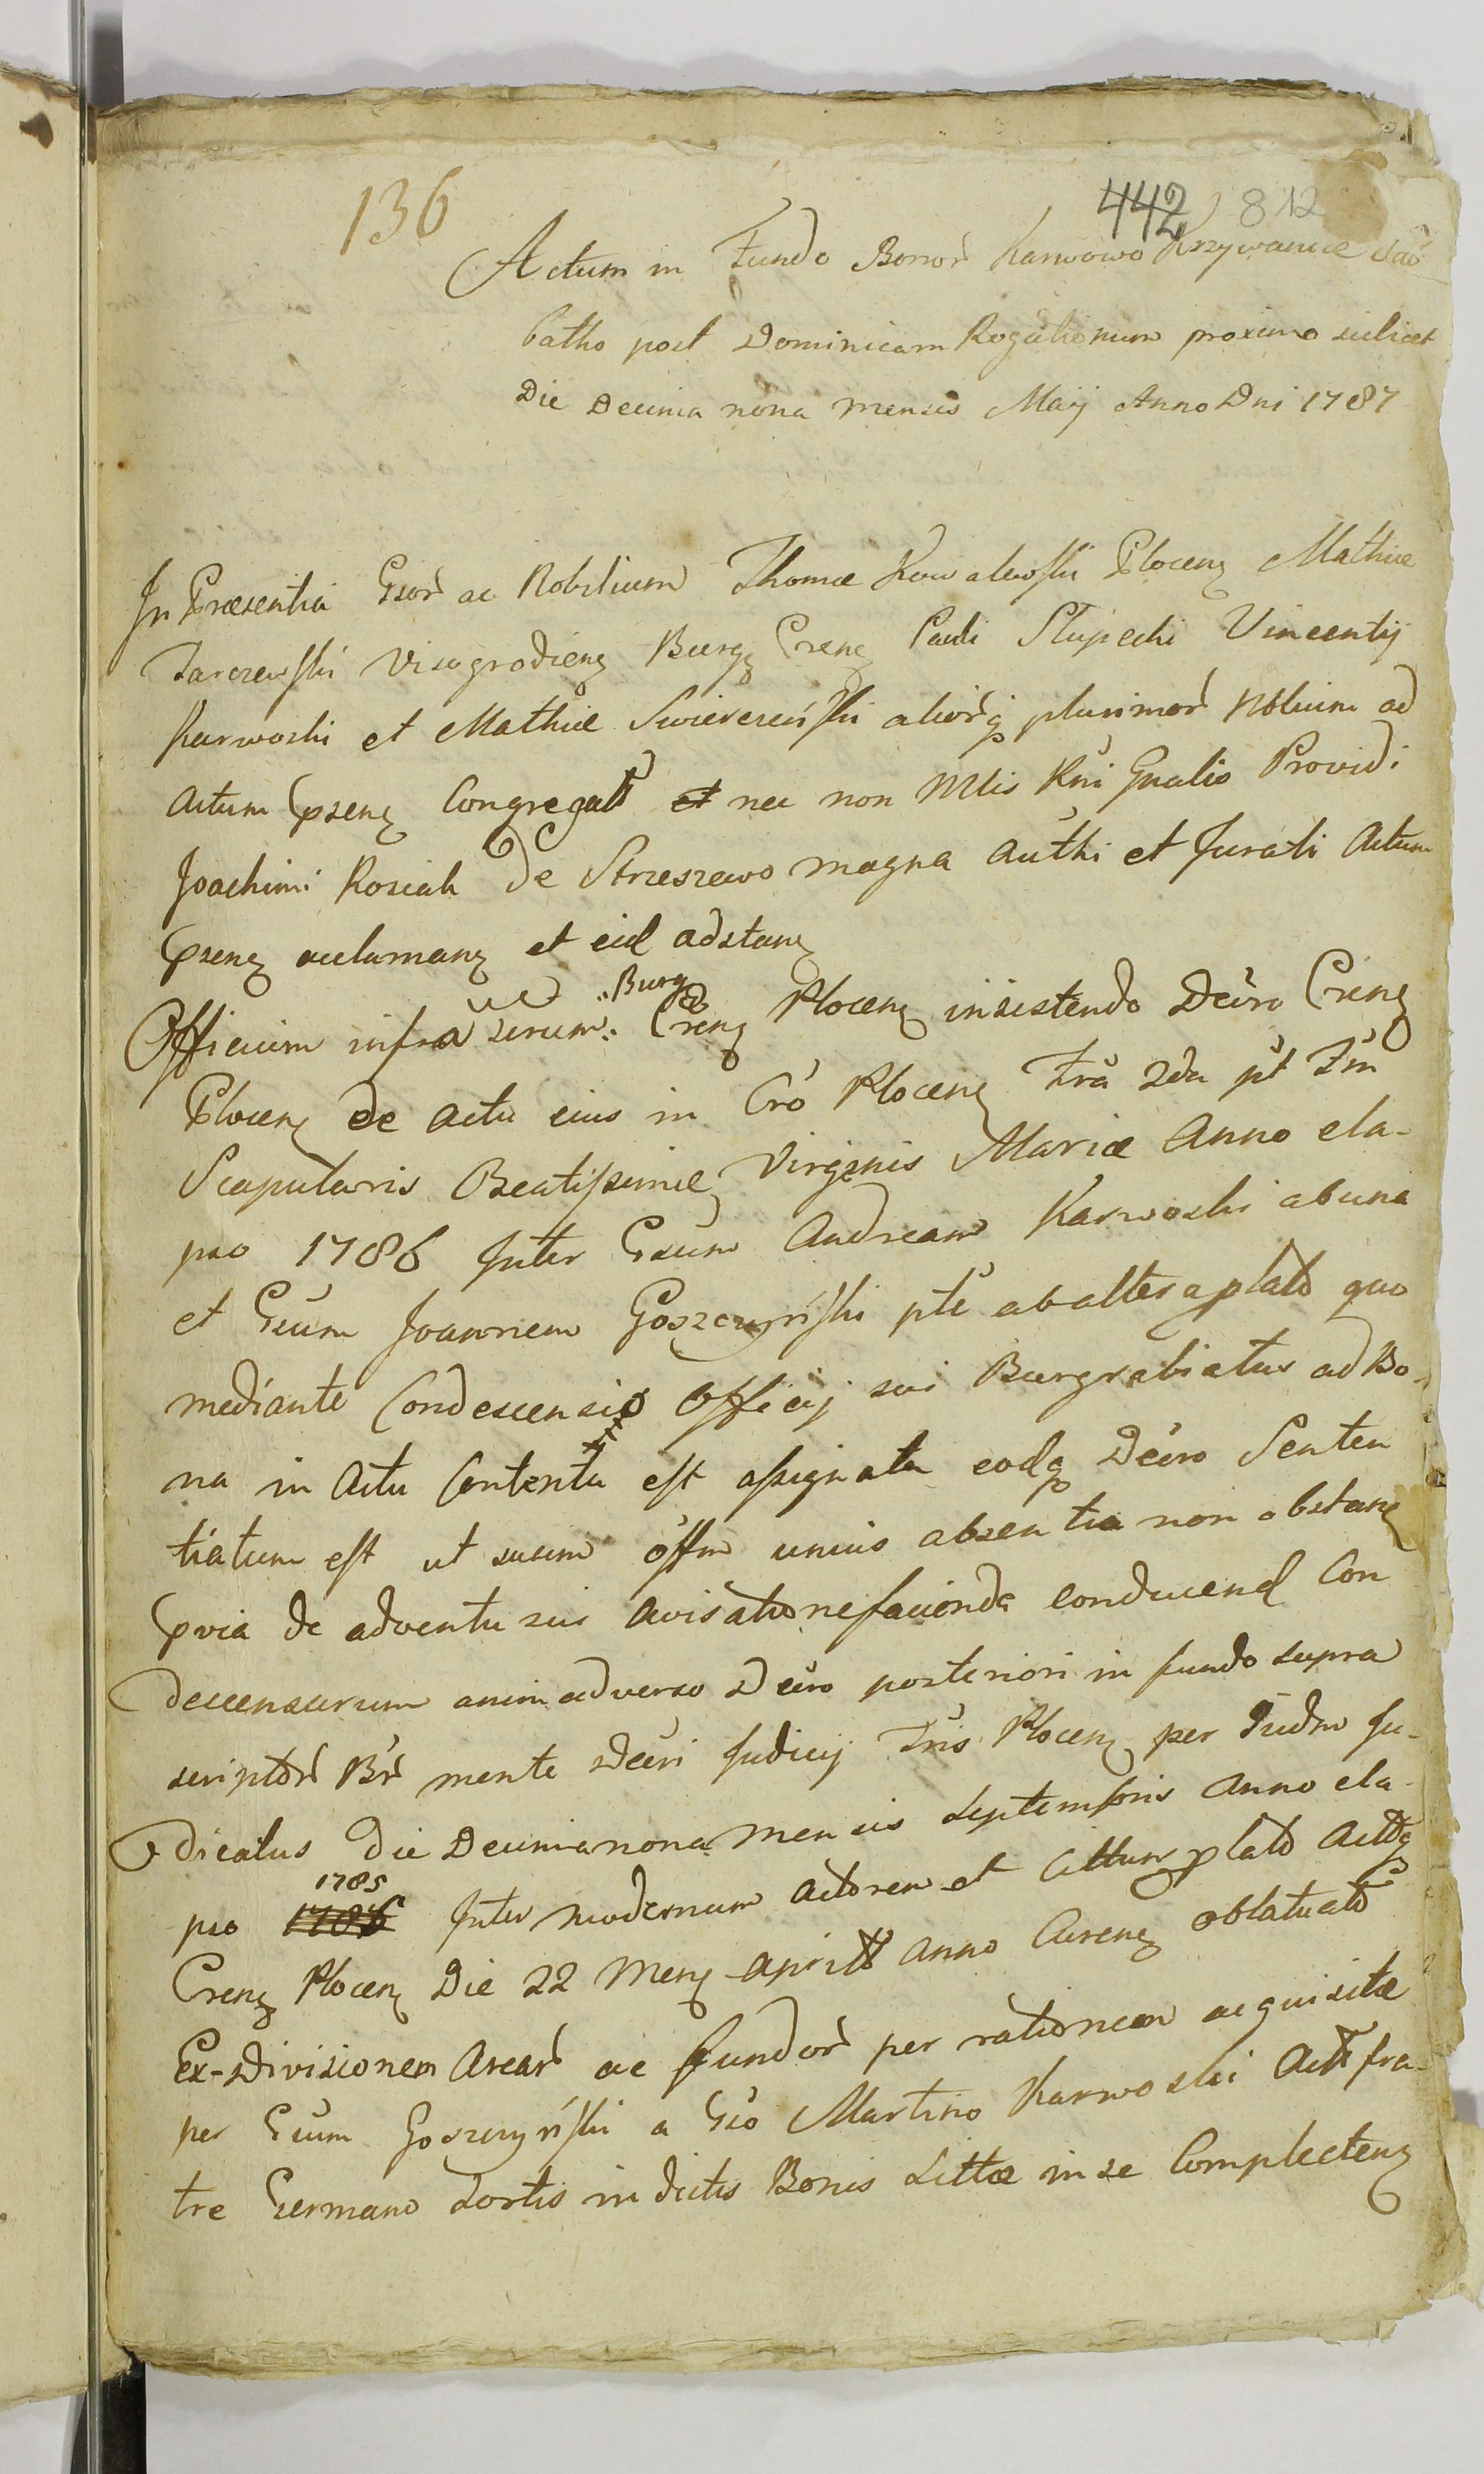 136
442 812
Actum in Fundo Bonor̃ Karwowo Krzywanice Sab
batho post Dominicam Rogationum proximo scilicet
Die Decima nona mensis Maij Anno Dni 1787
In Præsentia Gsor̃ ac Nobilium Thomæ Kowalewski Plocen Mathiæ
Tarczewski Visogrodien Burg Cren Pauli Slupecki Vincentij
Karwoski et Mathiæ Swierczeiński aliorq plurimor̃ Nblium ad
Actum Psen Congregat et nec non Mlis Rni Gnalis Providi
Joachimi Rosiak de Strzeszewo magna authi et Jurati Actum
Psen acclaman et eid adstan
Officium infra scrum: Burg Cren Plocen insistendo Decro Cren
Plocen de actu eius in Cro Plocen Fra 2da pt Fm
Scapularis Beatissimæ Virginis Mariæ Anno ela-
pso 1786 Inter Gsum Andream Karwoski ab una
et Gsum Joannem Goszczyński pte ab altera plato quo
mediante Condescensio Officij sui Burgrabiatus ad Bo-
na in Actu Contenta est assignata eodq Decro Senten
tiatum est ut suum offm unius absentia non obstan
Pvia de adventu sui avisatione facienda conducend Con
descensurum animadverso Decro posteriori in fundo supra
scriptor̃ Br̃ mente Decri Judicij Tris Plocen per Eudm Ju-
dicatus Die Decima nona Mensis Septembris Anno ela-
pso 1786 1785 Inter modernum Actorem et Cittum plato Actq
Cren Plocen Die 22 Men Aprill Anno Curen oblatuato
Ex-Divisionem Arear̃ ac fundor̃ per rationem acquisitæ
per Gsum Goszczyński a Gso Martino Karwoski Actt fra-
tre Germano Sortis in dictis Bonis Sittæ in se Complecten